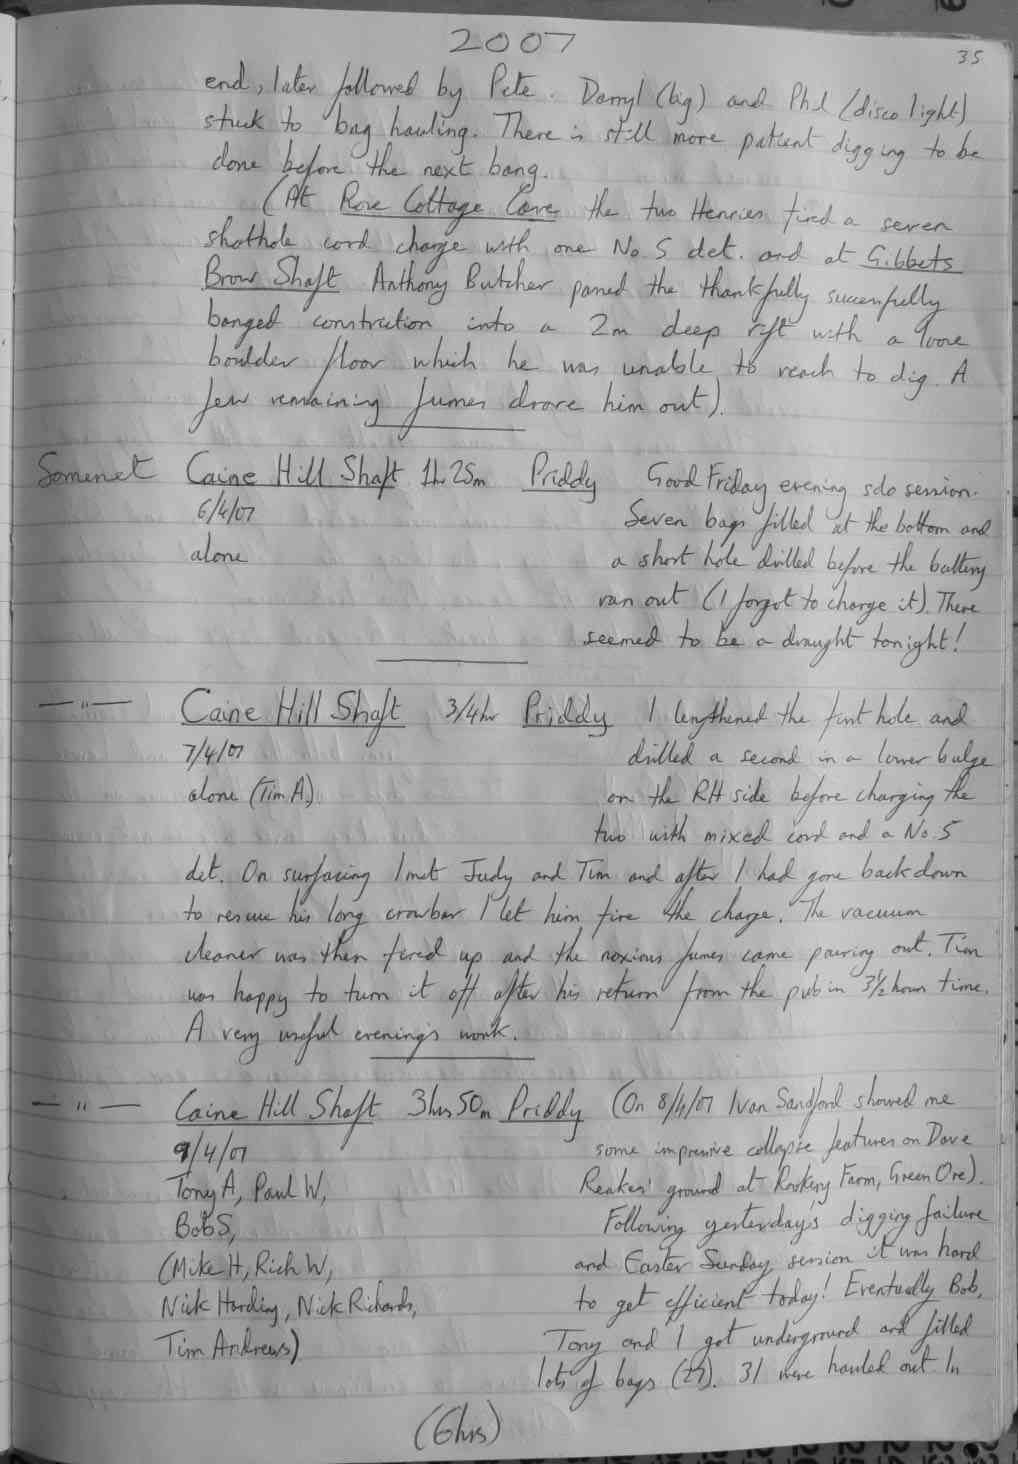 2007
35
end, later followed by Pete. Darryl (big) and Phil (disco light)
stuck to bag hauling. There is still more patient digging to be
done before the next bang.
(At Rose Cottage Cave the two Henries fired a seven
shothole cord charge with one No. 5 det. and at Gibbets
Brow Shaft Anthony Butcher passed the thankfully successfully
banged constriction into a 2m deep rift with a loose
boulder floor which he was unable to reach to dig. A
few remaining fumes drove him out).
Somerset Caine Hill Shaft 1hr 25m Priddy Good Friday evening solo session.
6/4/07 Seven bags filled at the bottom and
alone a short hole drilled before the battery
ran out (I forgot to charge it). There
seemed to be a draught tonight!
—"— Caine Hill Shaft 3/4hr Priddy I lengthened the first hole and
7/4/07 drilled a second in a lower bulge
alone (Tim A). on the RH side before charging the
two with mixed cord and a No. 5
det. On surfacing I met Judy and Tim and after I had gone back down
to rescue his long crowbar I let him fire the charge. The vacuum
cleaner was then fired up and the noxious fumes came pouring out. Tim
was happy to turn it off after his return from the pub in 3½ hours time.
A very useful evening's work.
—"— Caine Hill Shaft 3hrs 50m Priddy (On 8/4/07 Ivan Sandford showed me
9/4/07 some impressive collapse features on Dave
Tony A, Paul W, Reakes' ground at Rookery Farm, Green Ore).
Bob S, Following yesterday's digging failure
(Mike H, Rich W, and Easter Sunday session it was hard
Nick Harding, Nick Richards, to get efficient today! Eventually Bob,
Tim Andrews) Tony and I got underground and filled
lots of bags (27). 31 were hauled out. In
(6hrs)